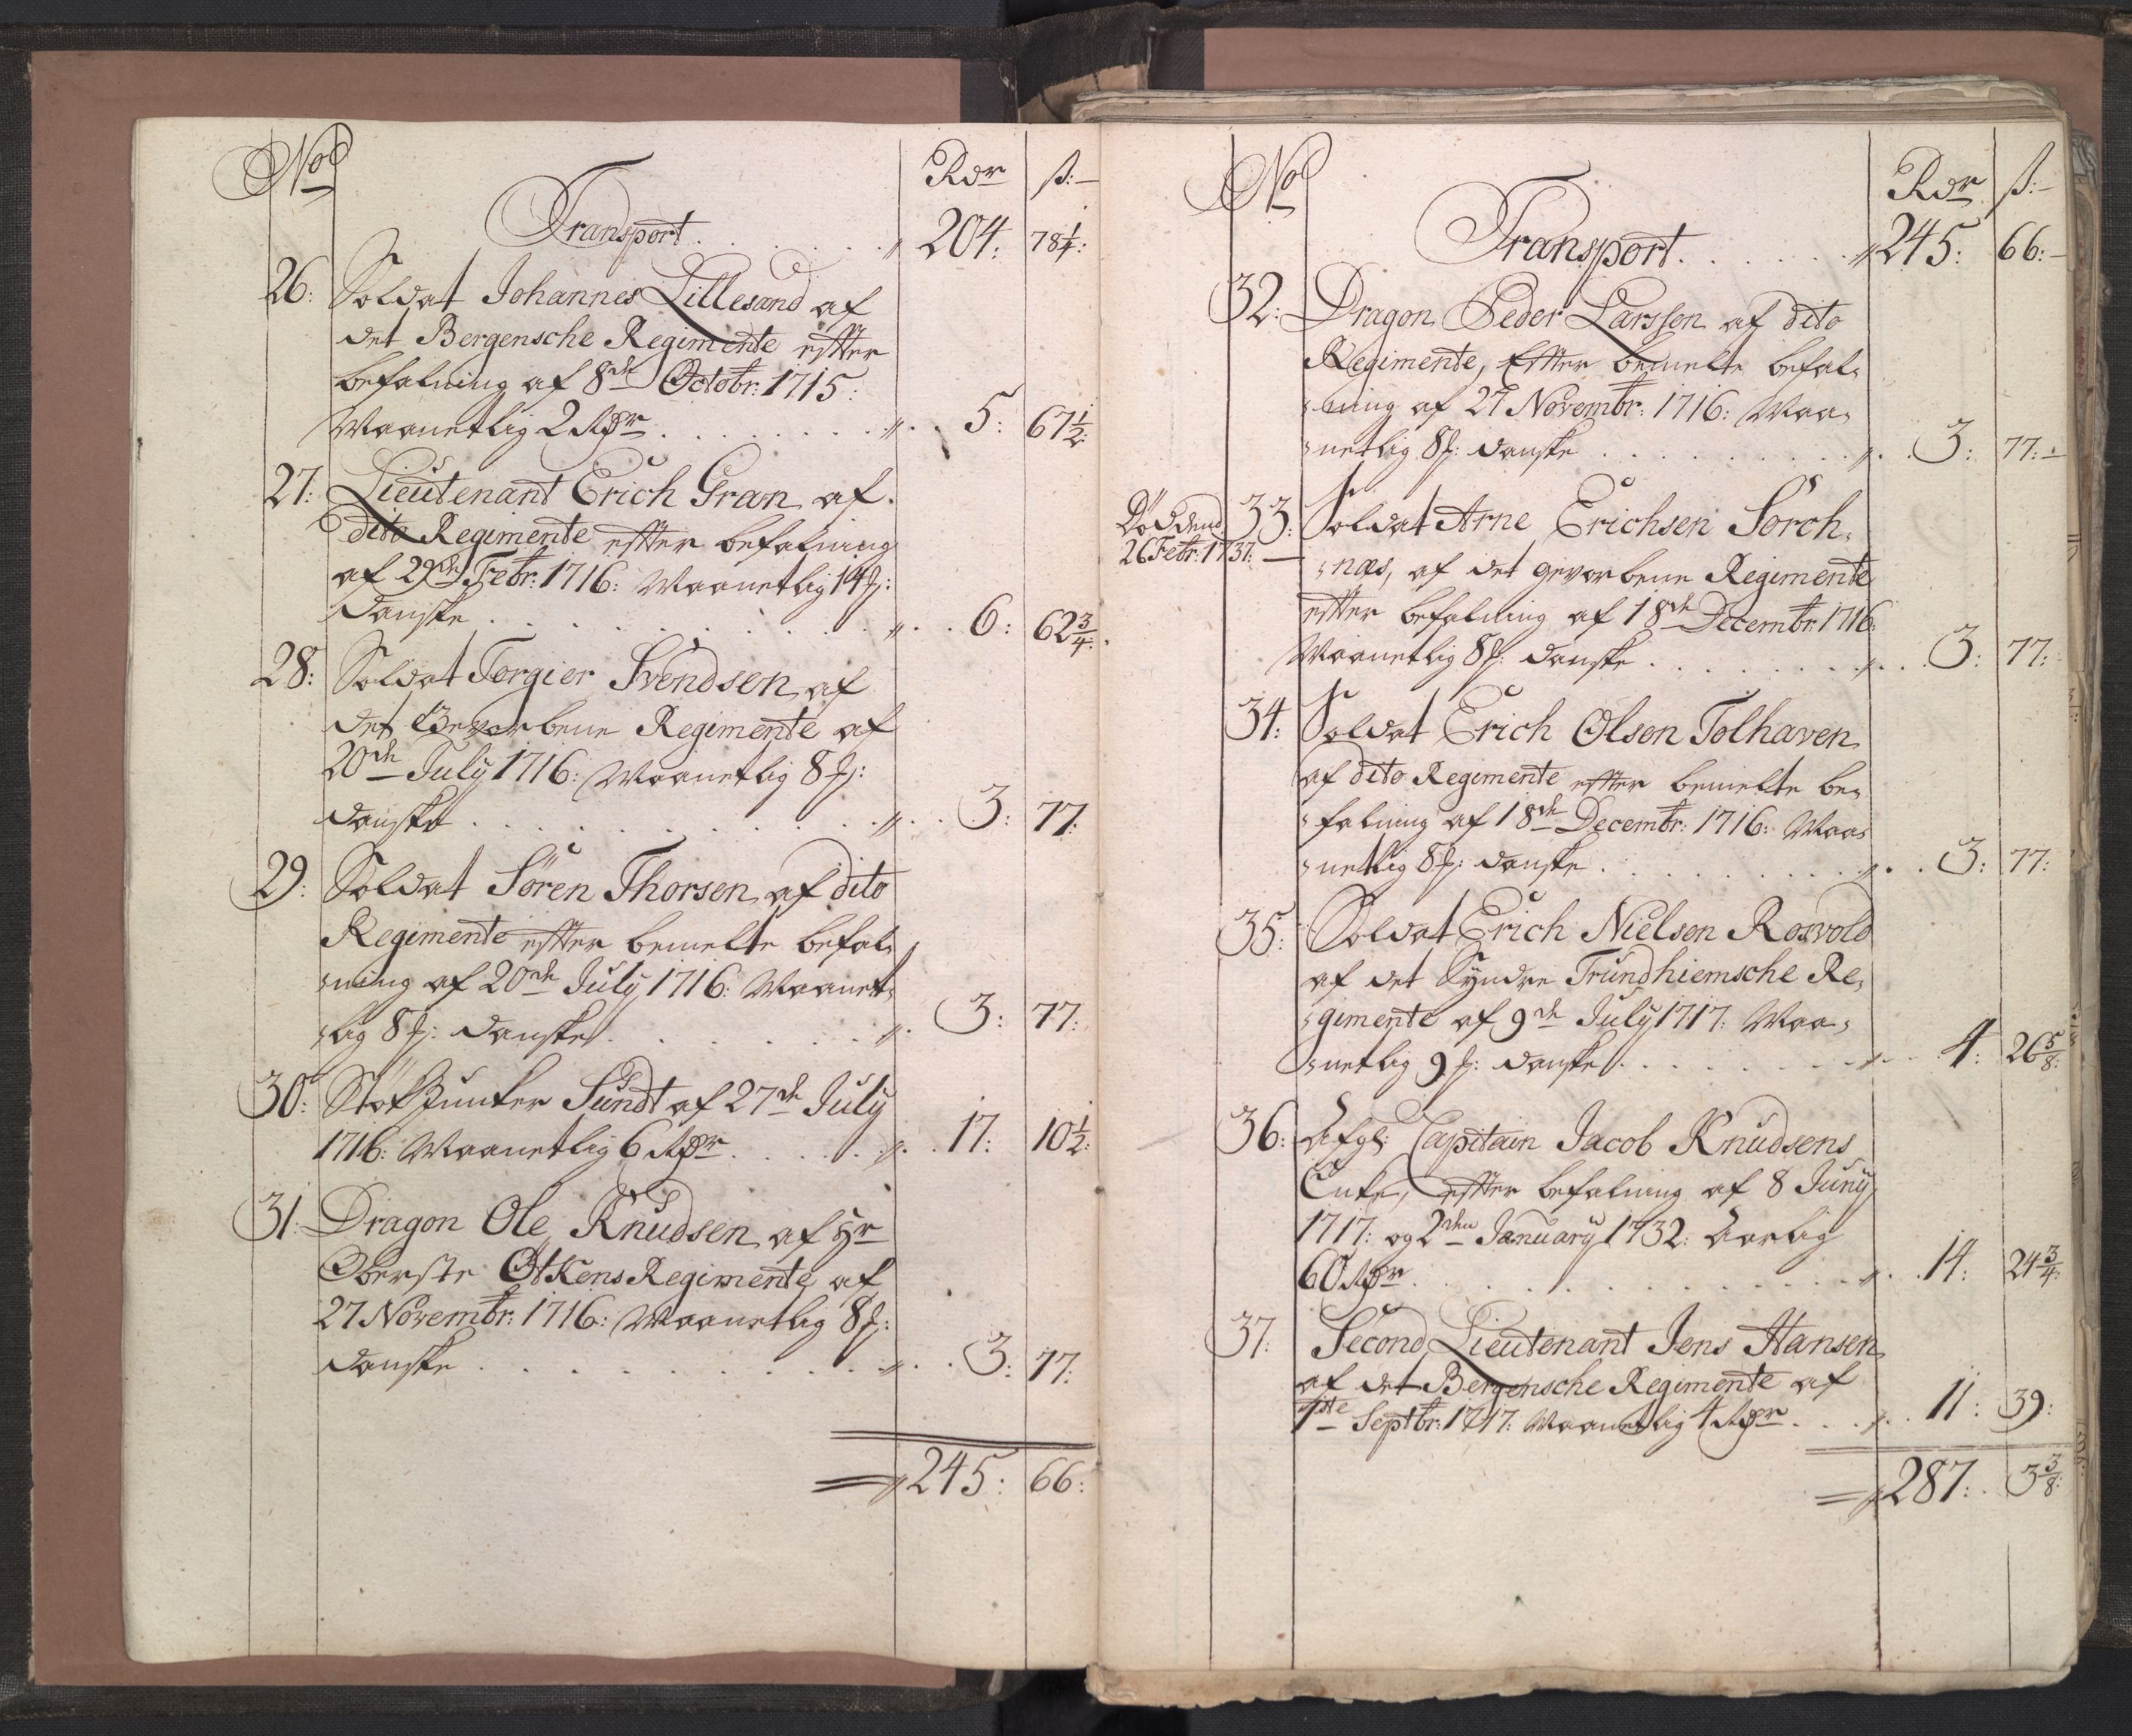 No Rdr ß:
Transport . . . . . . 204: 78¼:
26: Soldat Johannes Lillesand af
det Bergensche Regimente effter
befalning af 8de Octobr: 1715:
Maanetlig 2 Rdr . . . . . . 5: 67½:
27: Lieutenant Erich Gran af
dito Regimente effter befalning
af 29de Febr: 1716: Maanetlig 14 ß:
danske . . . . . . 6: 62¾:
28: Soldat Torgier Svendsen af
det Gevorbene Regimente af
20de July 1716: Maanetlig 8 ß:
danske . . . . . . 3: 77:
29: Soldat Sören Thorsen af dito
Regimente effter bemelte befal,
,ning af 20de July 1716: Maanet,
,lig 8 ß: danske . . . . . . 3: 77:
30: Stökjunker Sundt af 27de July
1716: Maanetlig 6 Rdr . . . . . . 17: 10½:
31: Dragon Ole Knudsen af Hr
Oberste Ötkens Regimente af
27 Novembr: 1716: Maanetlig 8 ß:
danske . . . . . . 3: 77:
245: 66:
No Rdr ß:
Transport . . . . . . 245: 66:
32: Dragon Peder Larssen af dito
Regimente, Effter bemelte befal,
,ning af 27 Novembr: 1716: Maa,
,netlig 8 ß: danske . . . . . . 3: 77:
Död dend 33: Soldat Arne Erichsen Sörch,
26 Febr: 1737: ,næs, af det gevorbene Regimente
effter befalning af 18de Decembr: 1716:
Maanetlig 8 ß: danske . . . . . . 3: 77:
34: Soldat Erich Olsen Tolhaven
af dito Regimente effter bemelte be,
,falning af 18de Decembr: 1716: Maa,
,netlig 8 ß: danske . . . . . . 3: 77:
35: Soldat Erich Nielsen Rosvold
af det Syndre Trundhiemsche Re,
,gimente af 9de July 1717: Maa,
,netlig 9 ß: danske . . . . . . 4: 26⅝:
36: Afgl: Capitain Jacob Knudsens
Enke, effter befalning af 8 Juny
1717: og 2den January 1732: Aarlig
60 Rdr . . . . . . 14: 24¾:
37: Second Lieutenant Jens Hansen
af det Bergensche Regimente af
1ste Septbr: 1717: Maanetlig 4 Rdr . . . 11: 39:
287: 3⅜: